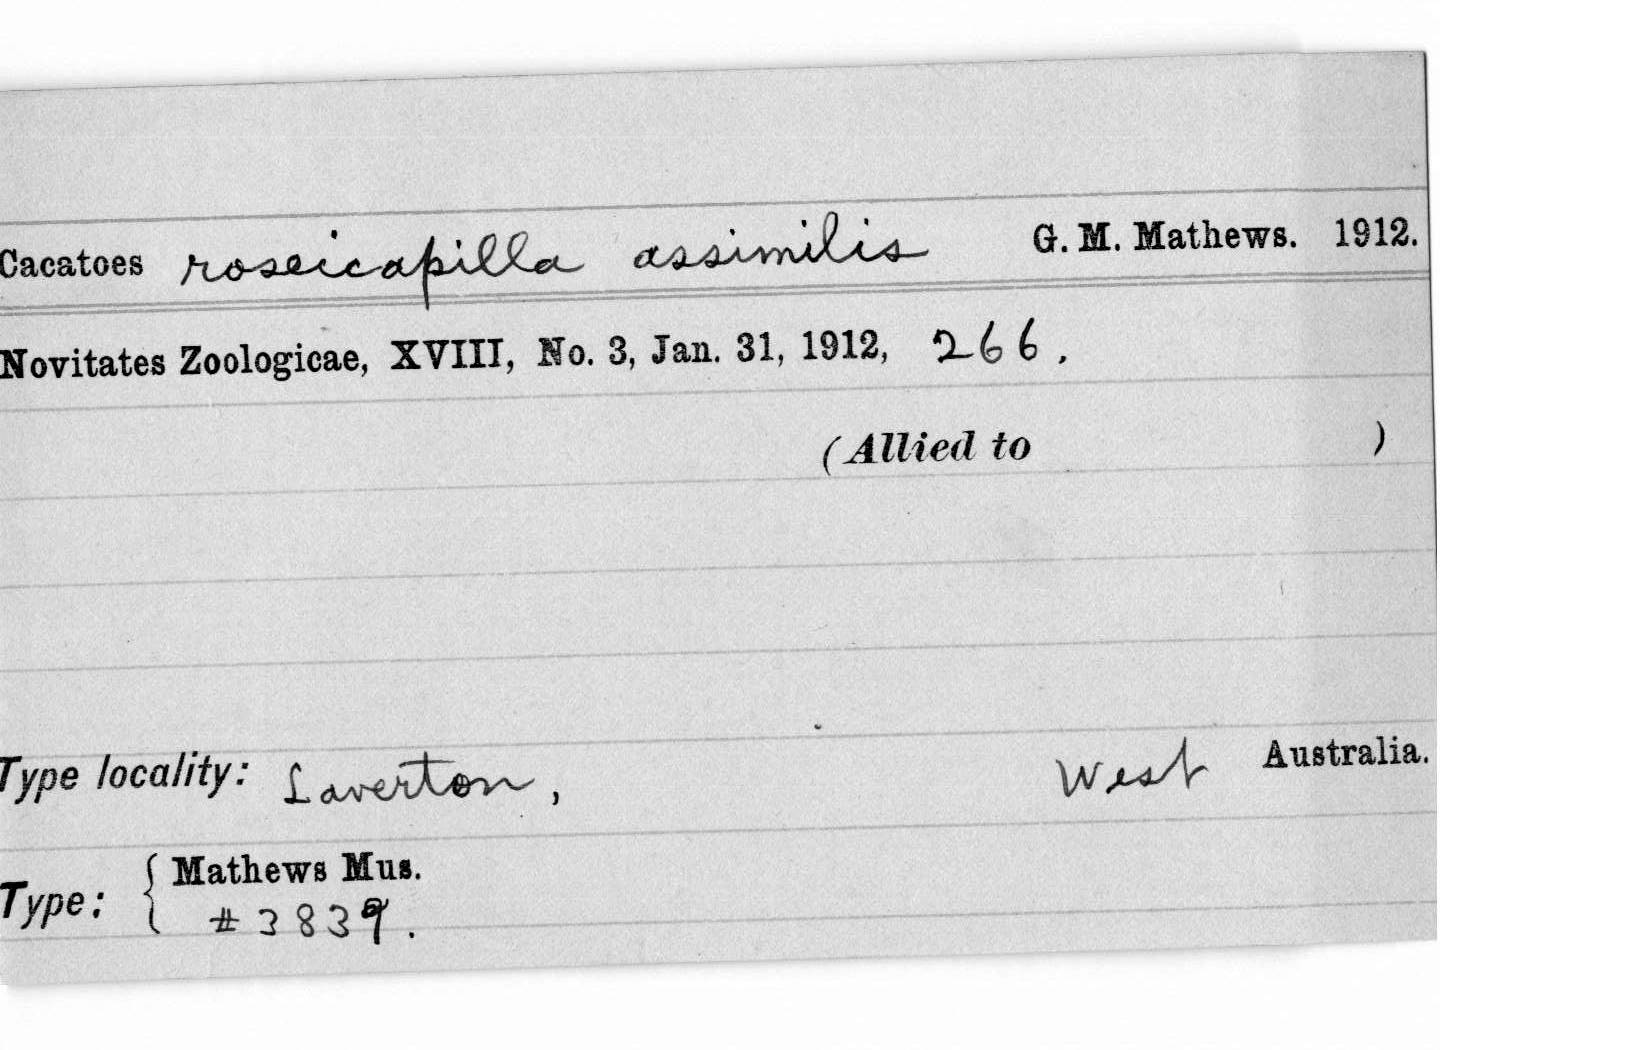 Cacatoes roseicapilla assimilis G. M. Mathews. 1912.
Novitates Zoologicae, XVIII, No. 3, Jan. 31, 1912, 266.
(Allied to )
Type locality: Laverton, West Australia.
Type: { Mathews Mus.
#3839.